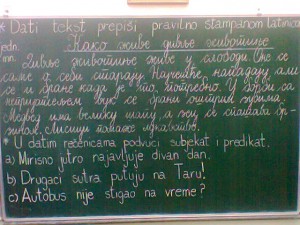 * Dati tekst prepiši pravilno štampanom latinicom
jedn. Како живе дивље животиње
мн. Дивље животиње живе у слободи. Оне се
саме о себи старају. Најчешће нападају али
се и бране када је то потребно. У борби са
непријатељем вук се брани оштрим зубима.
Медвед има велику шапу, а јеж се спашава бо-
дљом. Лисици помаже лукавство.
* U datim rečenicama podvuci subjekat i predikat.
a) Mirisno jutro najavljuje divan dan.
b) Drugaci sutra putuju na Taru!
c) Autobus nije stigao na vreme?